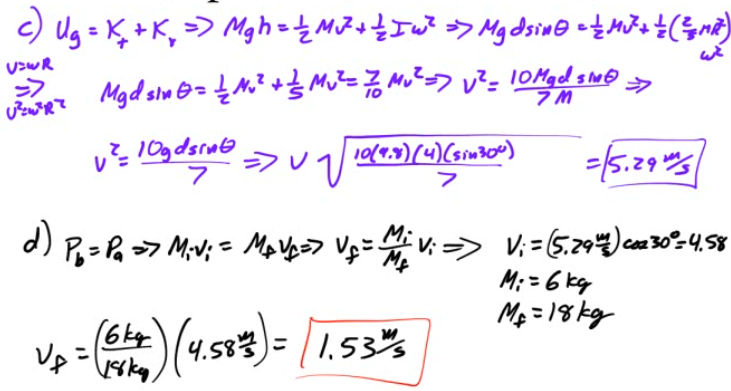 c) Ug = K_t + K_r => Mgh = ½Mv² + ½Iω² => Mgd sinθ = ½Mv² + ½(⅖MR²)ω²
v=ωR => v²=ω²R² Mgd sinθ = ½Mv² + ⅕Mv² = 7/10 Mv² => v² = 10Mgd sinθ / 7M =>
v² = 10gd sinθ / 7 => v √(10(9.8)(4)(sin30°) / 7) = 5.29 m/s
d) P_b = P_a => M_i v_i = M_f v_f => v_f = M_i/M_f v_i => v_i = (5.29 m/s) cos30° = 4.58
M_i = 6 kg
M_f = 18 kg
v_f = (6 kg / 18 kg)(4.58 m/s) = 1.53 m/s